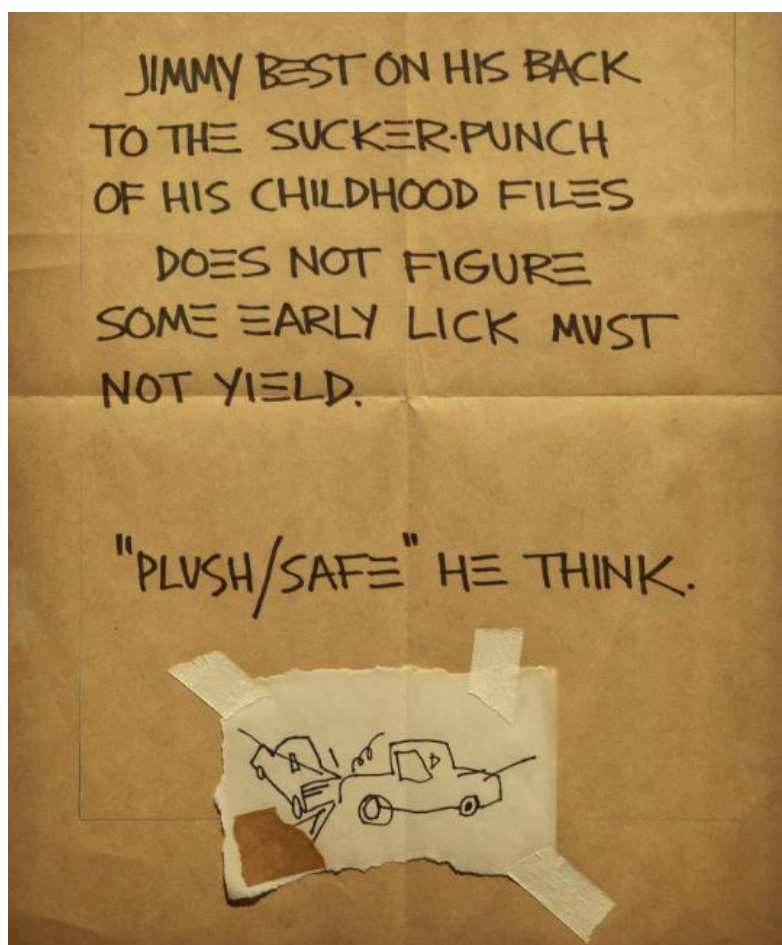 JIMMY BEST ON HIS BACK
TO THE SUCKER-PUNCH
OF HIS CHILDHOOD FILES
DOES NOT FIGURE
SOME EARLY LICK MUST
NOT YIELD.
"PLUSH/SAFE" HE THINK.